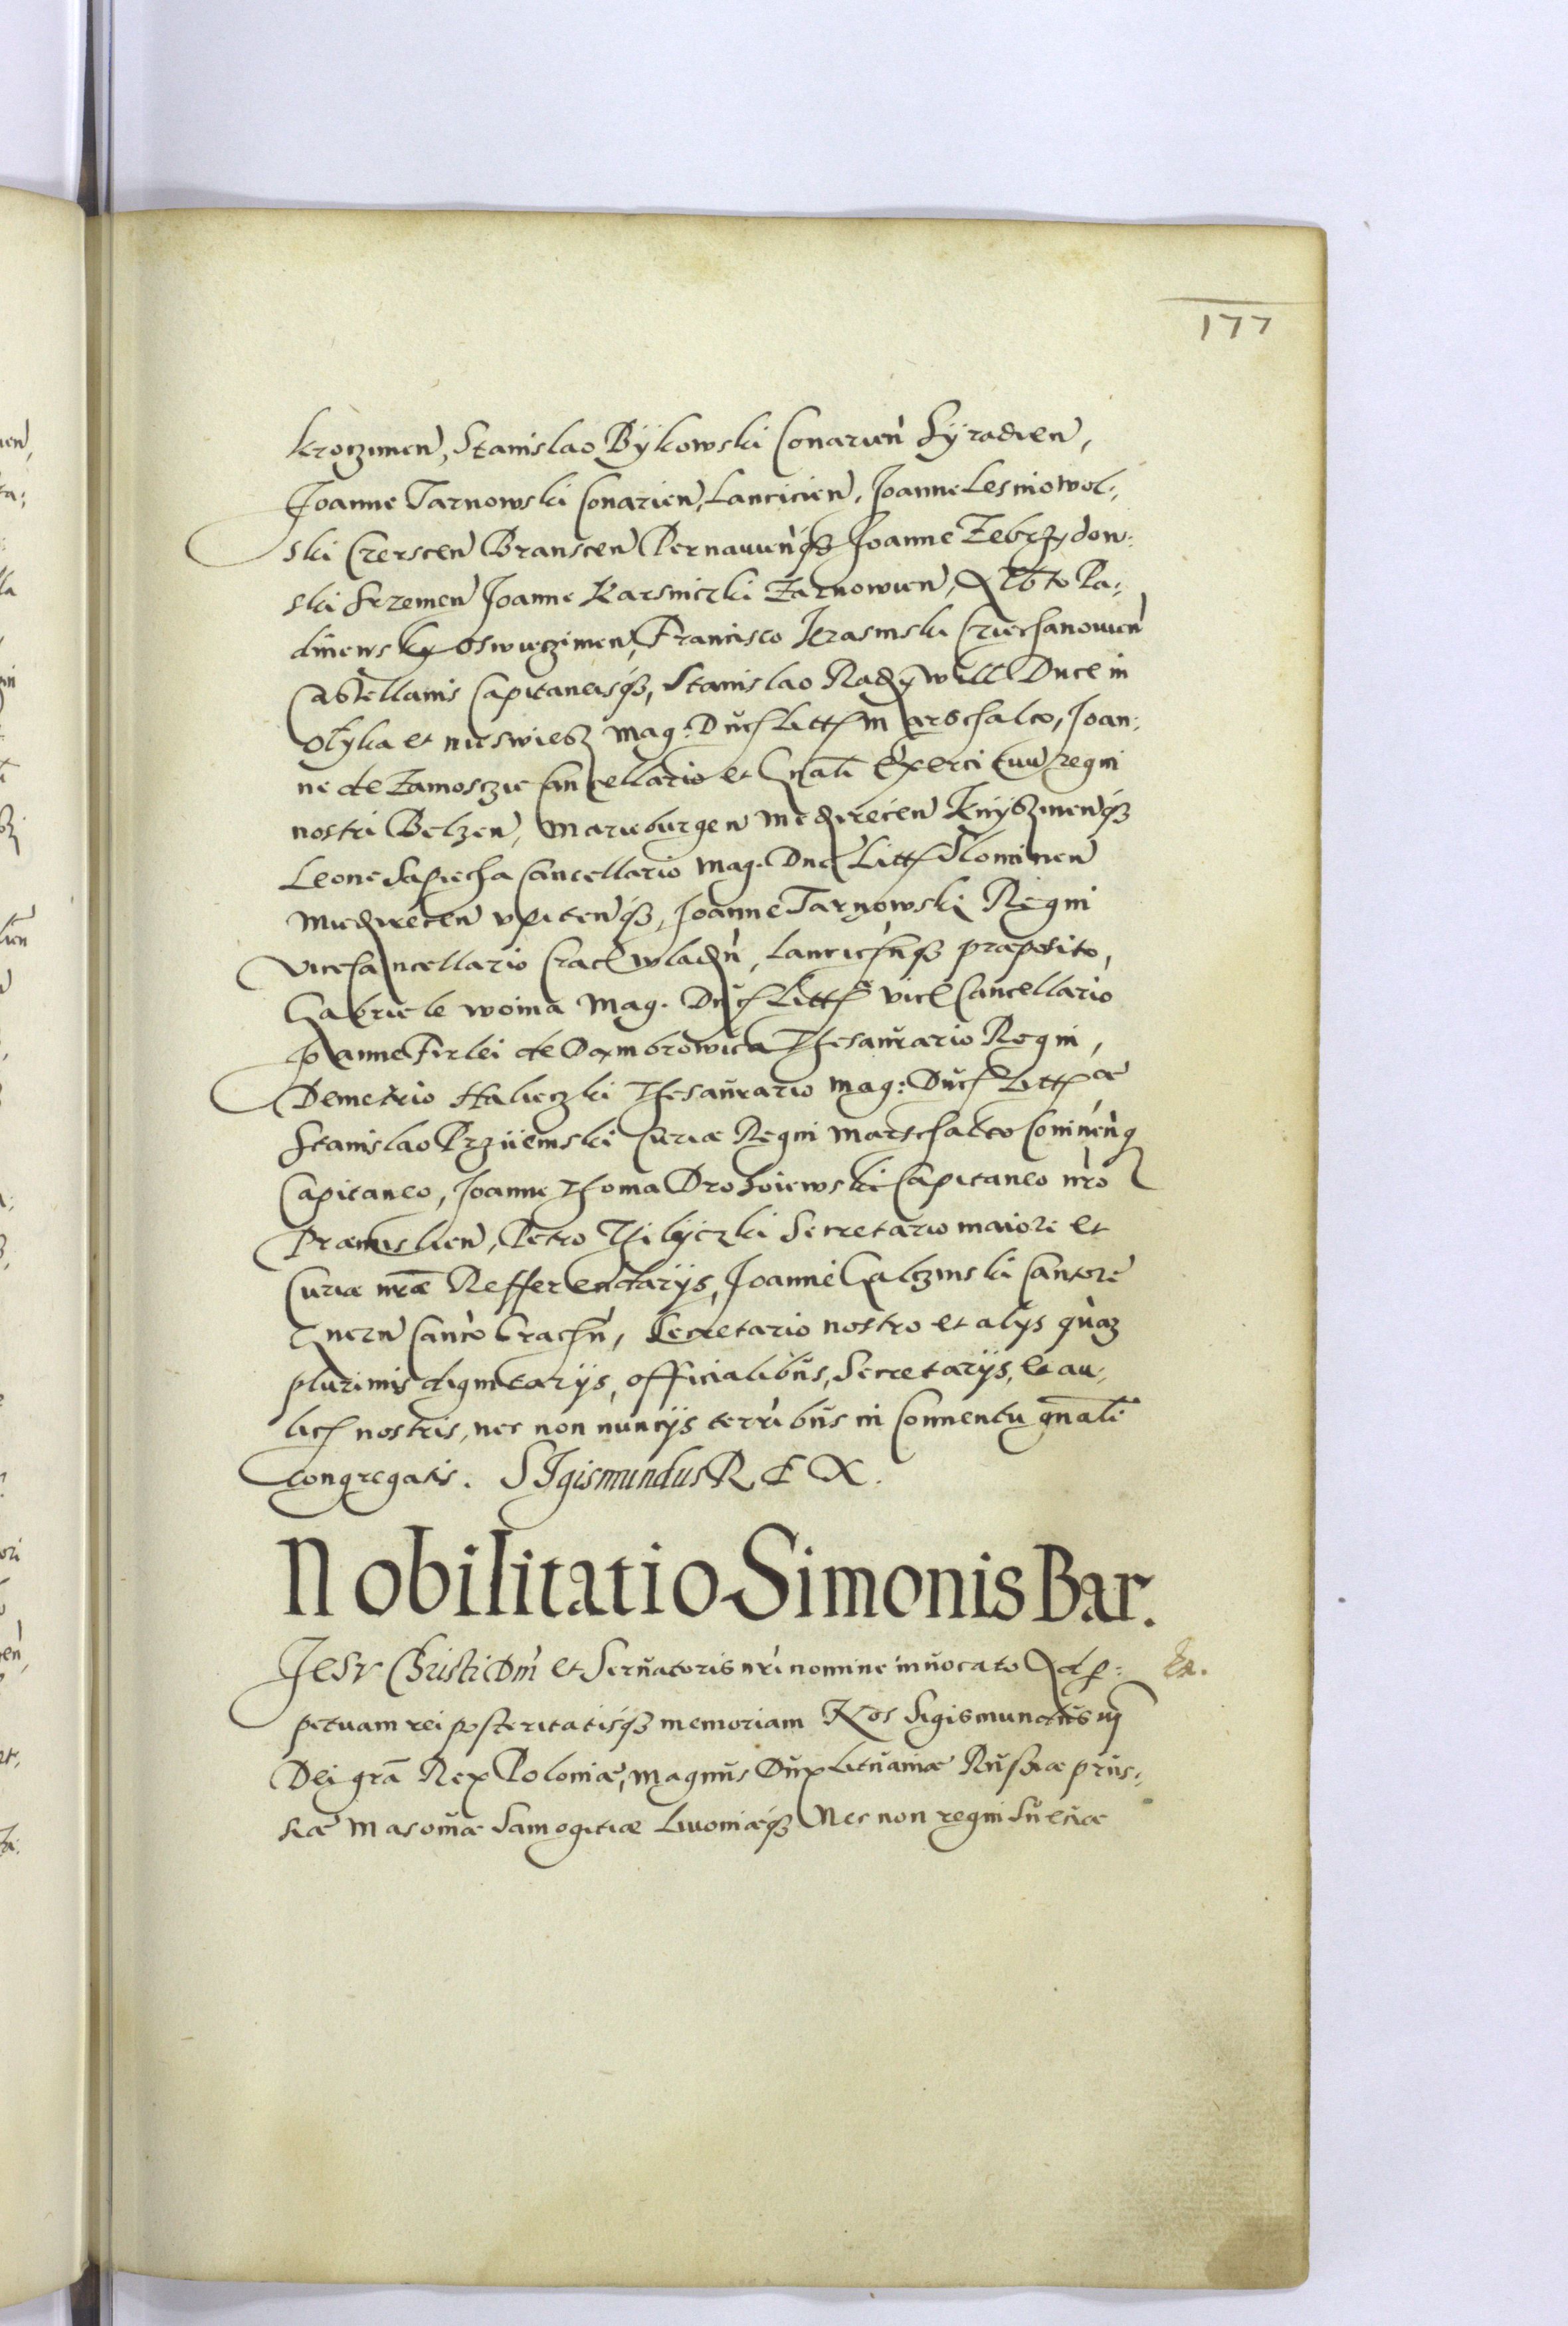 177
kroczimen, Stanislao Bÿkowski Conarien̄ Sÿradien,
Joanne Tarnowski Conarien, Lancicien, Joanne Lesniowol:,
ski Czerscen Branscen Pernauien̄q₃ Joanne Zebrzydow:
ski Srzemen Joanne Karsniczki Zarnowien,
dniewsky Oswieczimen, Francisco Krasinski Cziechanouien̄
Castellanis Capitaneisq₃, Stanislao Radziwill Duce in
Olÿka et nieswiesz Mag: Duc Litt marschalco, Joan:
ne de Zamosczie Cancellario et Gnāli Exercituu regni
nostri Belzen, Marieburgen Medzirecen Knÿszinenq₃
Leone Sapiecha Cancellario Mag. Duc Litt Slonimen
Miedzirecen Upitenq₃, Joanne Tarnowski Regni
vicecancellario Crac wladn̄, Lancicn̄q₃ præposito,
Gabriele woina Mag. Duc Litt vice Cancellario
Joanne Firlei de Dambrowica Thesaurario Regni,
Demetrio Halieczki Thesaurario Mag: Duc Littæ
Stanislao Przÿiemski Curiæ Regni Marschalco Coninen̄q
Capitaneo, Joanne Thoma Drohoiewski Capitaneo nrō
Præmislien, Petro Tiliczki Secretario maiore et
Curiæ nrāe Refferendarijs, Joanne Galczinski Cantore
Gnezn Canco Cracn̄, Secretario nostro et alijs quāz
plurimis dignitarijs, officialibus, Secretarijs, et au:,
lic nostris, nec non nuncijs terribus in Conuentu gnāli
congregatis. SIgismundus REX.
Nobilitatio Simonis Bar.
Jesv Christi Dni et Seruatoris nri nomine inuocato Ad p:
petuam rei posteritatisq₃ memoriam Nos Sigismundus iij
Dei grā Rex Poloniæ, Magnus Dux Lituaniæ Russiæ prus:,
siæ Masouiæ Samogitiæ Liuoniæq₃ Nec non regni Sueciæ